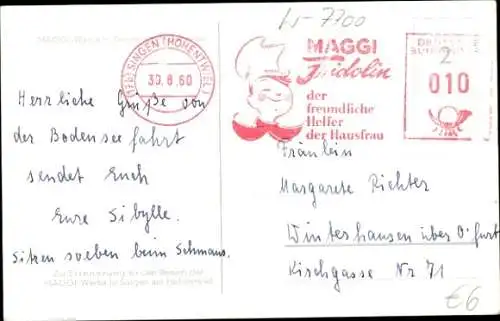 W-7700
(17b) SINGEN (HOHENTWIEL)
30.8.60
MAGGI
Fridolin
der
freundliche
Helfer
der Hausfrau
2
010
Herrliche Grüße von
der Bodenseefahrt
sendet Euch
Eure Sibylle.
Sitzen soeben beim Schmaus.
Zur Erinnerung an den Besuch der
MAGGI-Werke in Singen am Hohentwiel
Fräulein
Margarete Richter
Winterhausen über O.furt
Kirchgasse Nr 71
€6